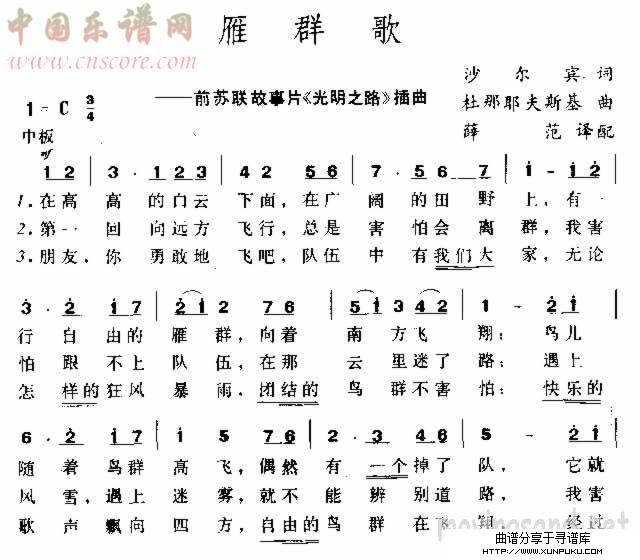 中国乐谱网
www.cnscore.com
雁群歌
——前苏联故事片《光明之路》插曲
沙尔宾 词
杜那耶夫斯基 曲
薛范 译配
1=C 3/4
中板
mf
1 2 | 3 · 1 2 3 | 4 2 5 6 | 7 · 5 6 7 | 1 - 1 2 |
1.在高 高的白云 下面,在广 阔的田野 上,有一
2.第一 回向远方 飞行,总是 害怕会离 群,我害
3.朋友,你 勇敢地 飞吧,队伍 中有我们大 家,无论
3 · 2 1 7 | 2 1 2 7 6 | 5 1 3 4 2 | 1 - 2 1 |
行自由的 雁群,向着 南方飞 翔;鸟儿
怕跟不上 队伍,在那 云里迷了 路;遇上
怎样的狂风 暴雨,团结的 鸟群不害 怕;快乐的
6 · 2 1 7 | 1 5 7 6 | 2 · 3 4 6 | 5 - 2 1 |
随着鸟群 高飞,偶然 有一个掉了 队,它就
风雪,遇上 迷雾,就不 能辨别道 路,我害
歌声飘向 四方,自由的 鸟群在飞 翔
曲谱分享于寻谱库
WWW.XUNPUKU.COM